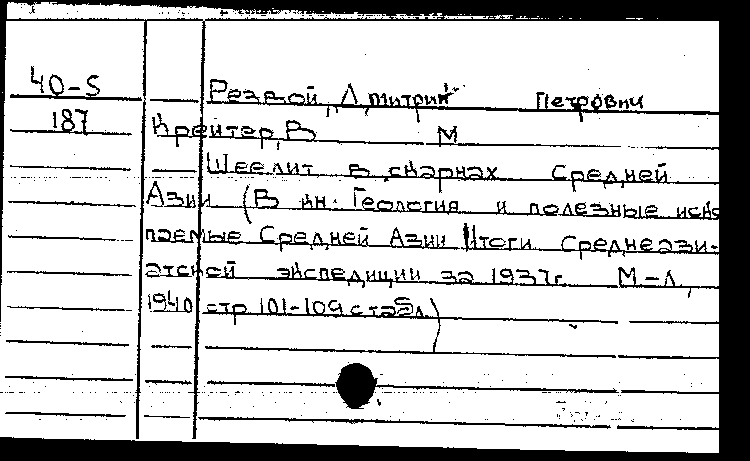 40-5
187
Резвой, Дмитрий Петрович
Крейтер, В М
Шеелит в скарнах Средней
Азии (В кн. Геология и полезные иско
паемые Средней Азии Итоги Среднеази-
атской экспедиции за 1937г. М-Л,
1940 стр 101-109 с табл)